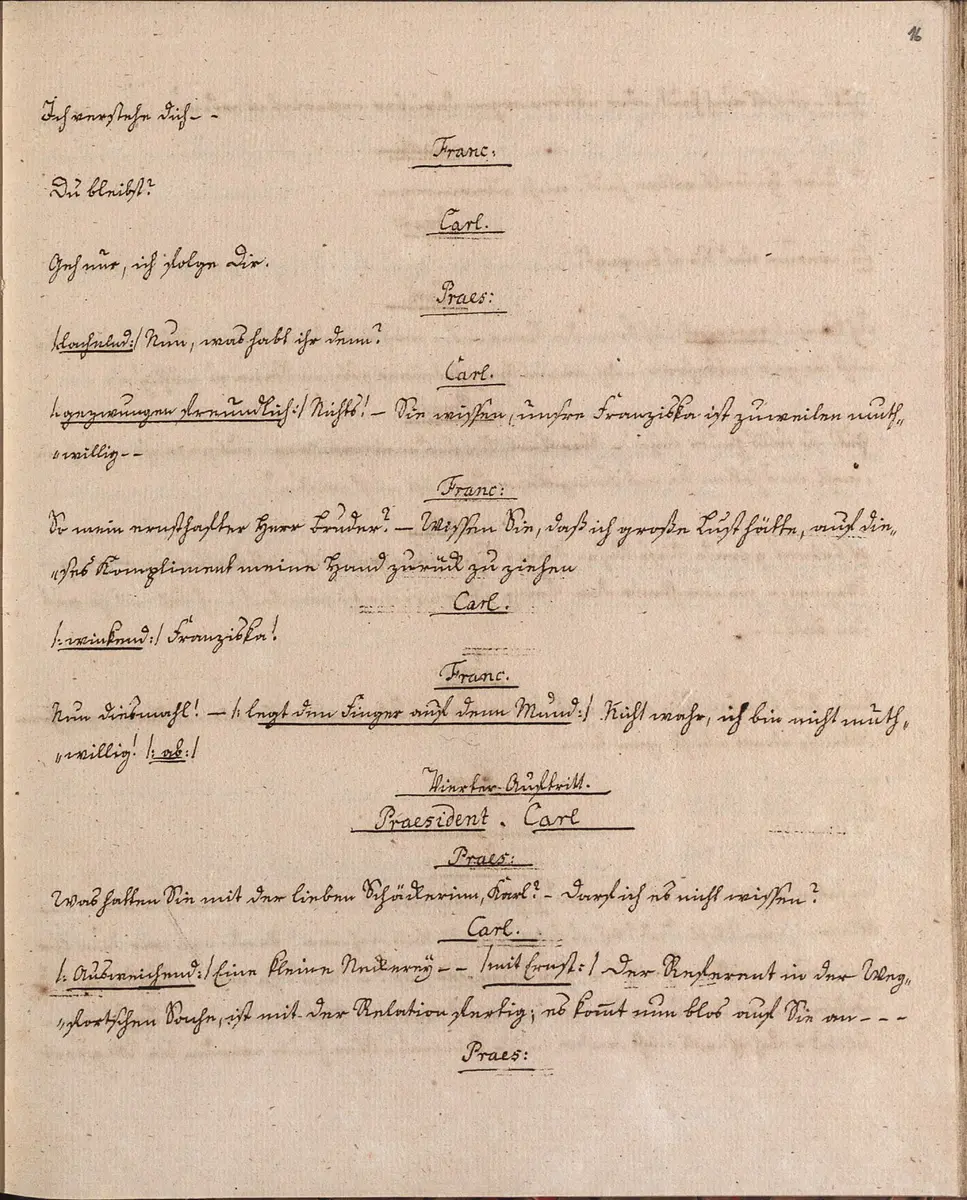 16
Ich verstehe dich - -
Franc:
Du bleibst?
Carl.
Geh nur, ich folge dir.
Praes:
/:lachelnd:/ Nun, was habt ihr denn?
Carl.
/:gezwungen freundlich:/ Nichts! - Sie wissen, unsre Franziska ist zuweilen muth„
„willig - -
Franc:
So mein ernsthafter Herr Bruder? - Wissen Sie, daß ich große Lust hätte, auf die„
„ses Kompliment meine Hand zurück zu ziehen
Carl.
/:winkend:/ Franziska!
Franc.
Nun diesmahl! - /:legt den Finger auf denn Mund:/ Nicht wahr, ich bin nicht muth„
„willig! /:ab:/
Vierter Auftritt.
Praesident. Carl
Praes:
Was hatten Sie mit der lieben Schäckerinn, Karl? - Darf ich es nicht wissen?
Carl.
/:Ausweichend:/ Eine kleine Neckerey - - /mit Ernst:/ Der Referent in der Weg„
„fortschen Sache, ist mit der Relation fertig; es kom̅t nun blos auf Sie an - - -
Praes: